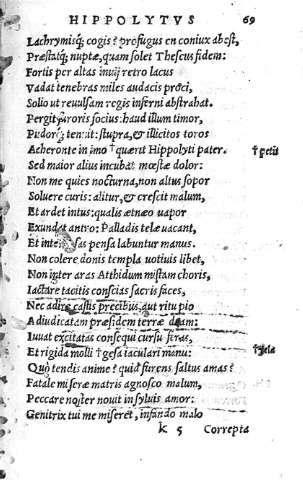 HIPPOLYTVS 69
Lachrymisq́; cogis? profugus en coniux abest,
Præstatq́; nuptæ, quam solet Theseus fidem:
Fortis per altas inuij retro lacus
Vadit tenebras miles audacis proci,
Solio ut reuulsam regis inferni abstrahat.
Pergit furoris socius: haud illum timor,
Pudorq́; tenuit: stupra, & illicitos toros
Acheronte in imo †quærit Hippolyti pater. †petit
Sed maior alius incubat mœstæ dolor:
Non me quies nocturna, non altus sopor
Soluere curis: alitur, & crescit malum,
Et ardet intus: qualis ætnæo uapor
Exundat antro: Palladis telæ uacant,
Et inter pensa labuntur manus.
Non colere donis templa uotiuis libet,
Non inter aras Atthidum mistam choris,
Iactare tacitis conscias sacris faces,
Nec adire castis precibus, aut ritu pio
Adiudicatam præsidem terræ deam:
Iuuat excitatas consequi cursu feras,
Et rigida molli †gesa iaculari manu: †tela
Quò tendis anime? quid furens saltus amas?
Fatale miseræ matris agnosco malum,
Peccare noster nouit in syluis amor:
Genitrix tui me miseret, infando malo
k 5 Correpta